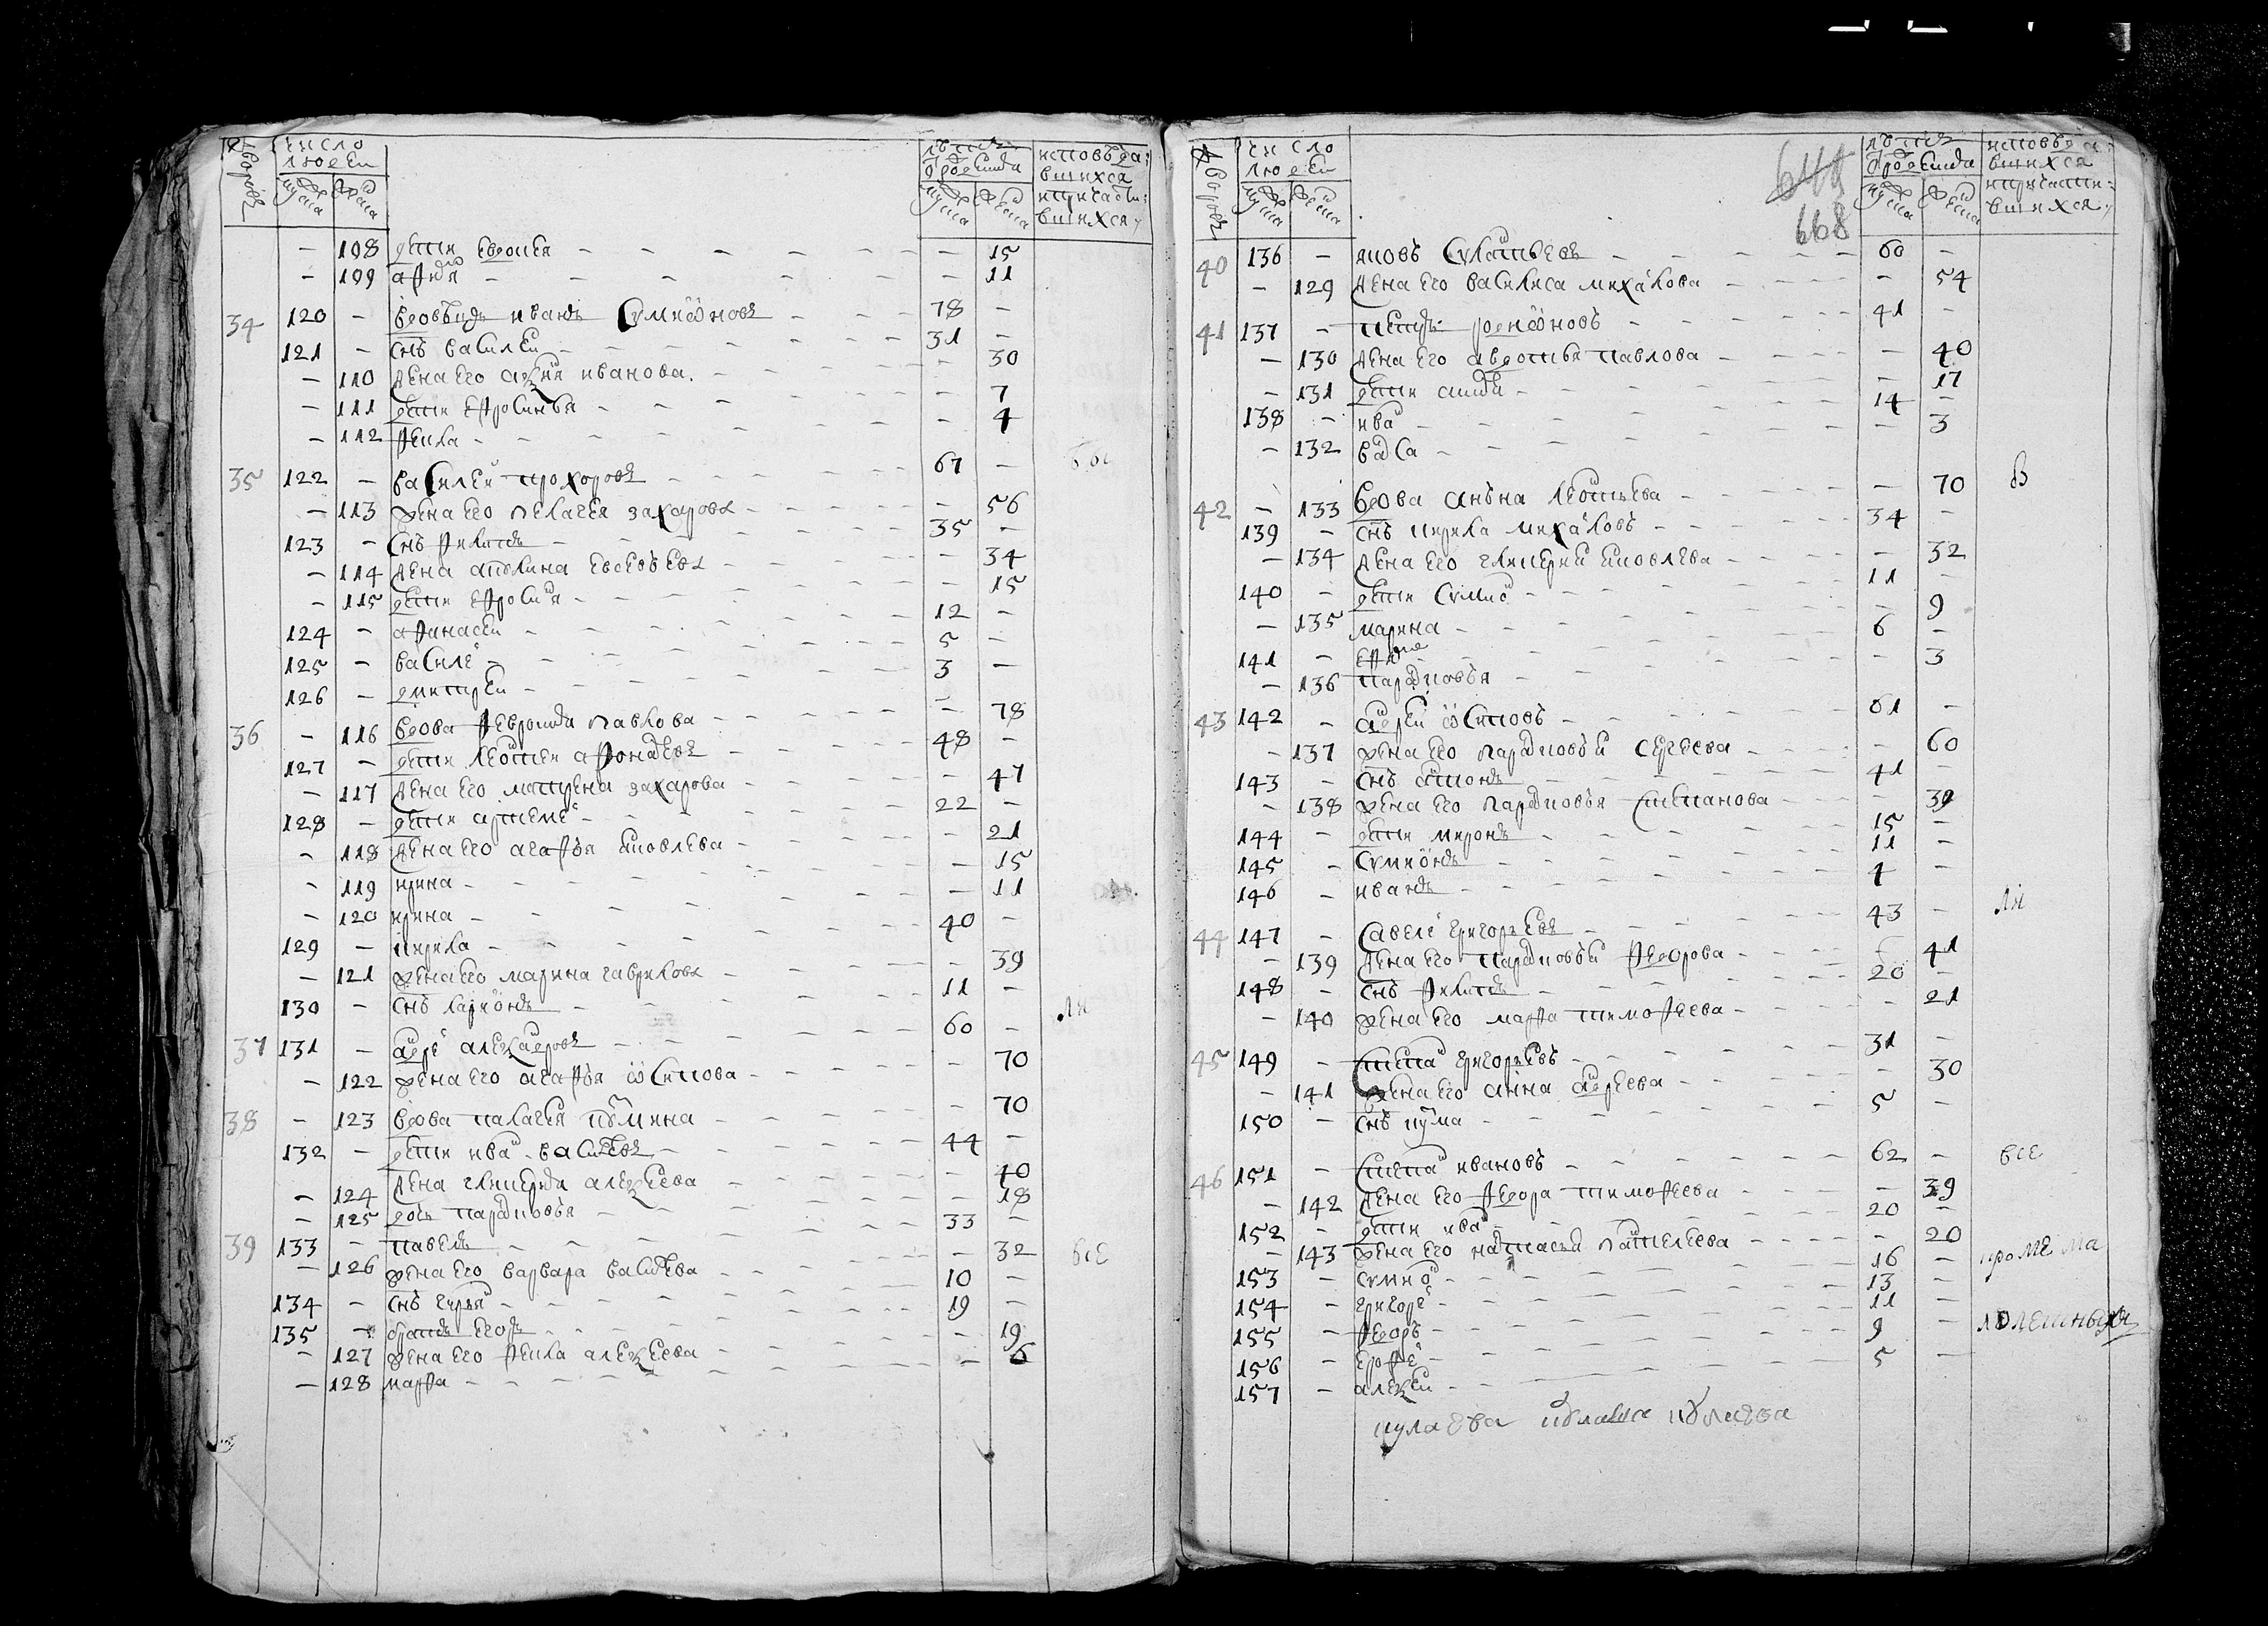 дворовъ
число людеи
мужеска женска
лѣта от рождения
мужеска женска
исповѣдавшихся и причастившихся
— 108 дети евдокея — 15
— 109 афимя — 11
34 120 — вдовецъ иванъ Сумионовъ 78 —
121 — снъ василеи 31 —
— 110 жена его аксиня иванова 30
— 111 дети ефросинья — 7
— 112 фекла — 4
35 122 — василеи прохоровъ 67 —
— 113 жена его пелагея захарова — 56
123 — снъ филипъ 35 —
— 114 жена апълина евсевьева — 34
— 115 дети ефросиня — 15
124 — афанасеи 12 —
125 — василе 5 —
126 — дмитреи 3 —
36 — 116 вдова февроня павлова — 78
127 — дети леонтеи афонасевъ 48 —
— 117 жена его матрена захарова — 47
128 — дети артеме 22 —
— 118 жена его агафья яковлева — 21
— 119 ирина — 15
— 120 ирина — 11
129 — кирила 40 —
— 121 жена его марина гаврилова — 39
130 — снъ ларионъ 11 —
37 131 — андре александровъ 60 —
— 122 жена его агафья осипова — 70
38 — 123 вдова палагея кузмина — 70
132 — дети иван василевъ 44 —
— 124 жена гликерия алексеева 40
— 125 дочь парасковья — 18
39 133 — павелъ 33 —
— 126 жена его варвара василева — 32 все
134 — снъ гурьян 10 —
135 — братъ егоръ 19 —
— 127 жена его фекла алексеева — 19
— 128 марфа — 6
дворовъ
число людеи
мужеска женска
649
668
лѣта от рождения
мужеска женска
исповѣдавшихся и причастившихся
40 136 — яковъ Сулатьевъ 60 —
— 129 жена его василиса михалова — 54
41 137 — петръ родионовъ 41 —
— 130 жена его авдотья павлова — 40
— 131 дети — 17
138 — иван 14 —
— 132 васса — 3
42 — 133 вдова анъна леонтьева — 70 в
139 — снъ кирила михаловъ 34 —
— 134 жена его гликерия яковлева — 32
140 — дети Сумион 11 —
— 135 марина — 9
141 — 6 —
— 136 парасковья — 3
43 142 — андреи осиповъ 61 —
— 137 жена его парасковья сергеева — 60
143 — снъ антонъ 41 —
— 138 жена его парасковья степанова 39
144 — дети миронъ 15 —
145 — Сумионъ 11 —
146 — иванъ 4 —
44 147 — Савеле григорьевъ 43 —
— 139 жена его парасковья федорова 41
148 — снъ филипъ 20 —
— 140 жена его марфа тимофеева — 21
45 149 — степан григорьевъ 31 —
— 141 жена его анна андреева — 30
150 — снъ кузма 5 —
46 151 — степан ивановъ 62 — все
— 142 жена его федора тимофеева — 39
152 — дети иван 20 —
— 143 жена его настасья пантелеева — 20
153 — сумион 16 — кроме ма
154 — григоре 13 —
155 — федоръ 11 —
156 — ерофе 9 — лолетныхъ
157 — алексеи 5 —